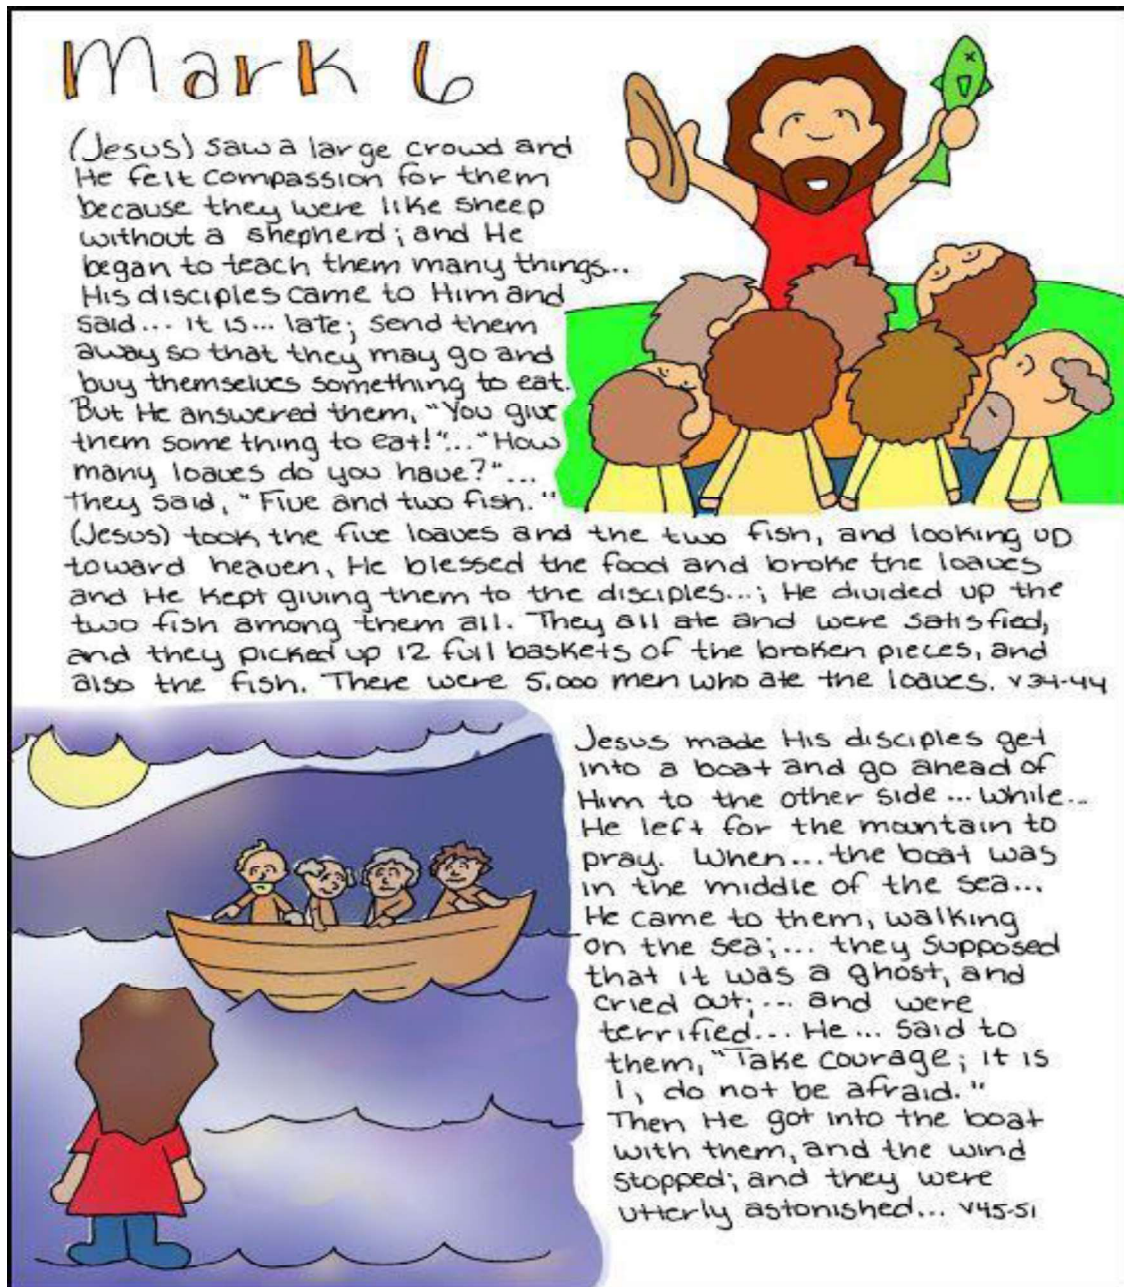 Mark 6
(Jesus) saw a large crowd and
He felt compassion for them
because they were like sheep
without a shepherd; and He
began to teach them many things...
His disciples came to Him and
said... it is... late; send them
away so that they may go and
buy themselves something to eat.
But He answered them, "You give
them some thing to eat!"... "How
many loaves do you have?"...
they said, "Five and two fish."
(Jesus) took the five loaves and the two fish, and looking up
toward heaven, He blessed the food and broke the loaves
and He kept giving them to the disciples...; He divided up the
two fish among them all. They all ate and were satisfied,
and they picked up 12 full baskets of the broken pieces, and
also the fish. There were 5,000 men who ate the loaves. v34-44
Jesus made His disciples get
into a boat and go ahead of
Him to the other side... while...
He left for the mountain to
pray. When... the boat was
in the middle of the sea...
He came to them, walking
on the sea;... they supposed
that it was a ghost, and
cried out;... and were
terrified... He... said to
them, "Take courage; it is
I, do not be afraid."
Then He got into the boat
with them, and the wind
stopped; and they were
utterly astonished... v45-51